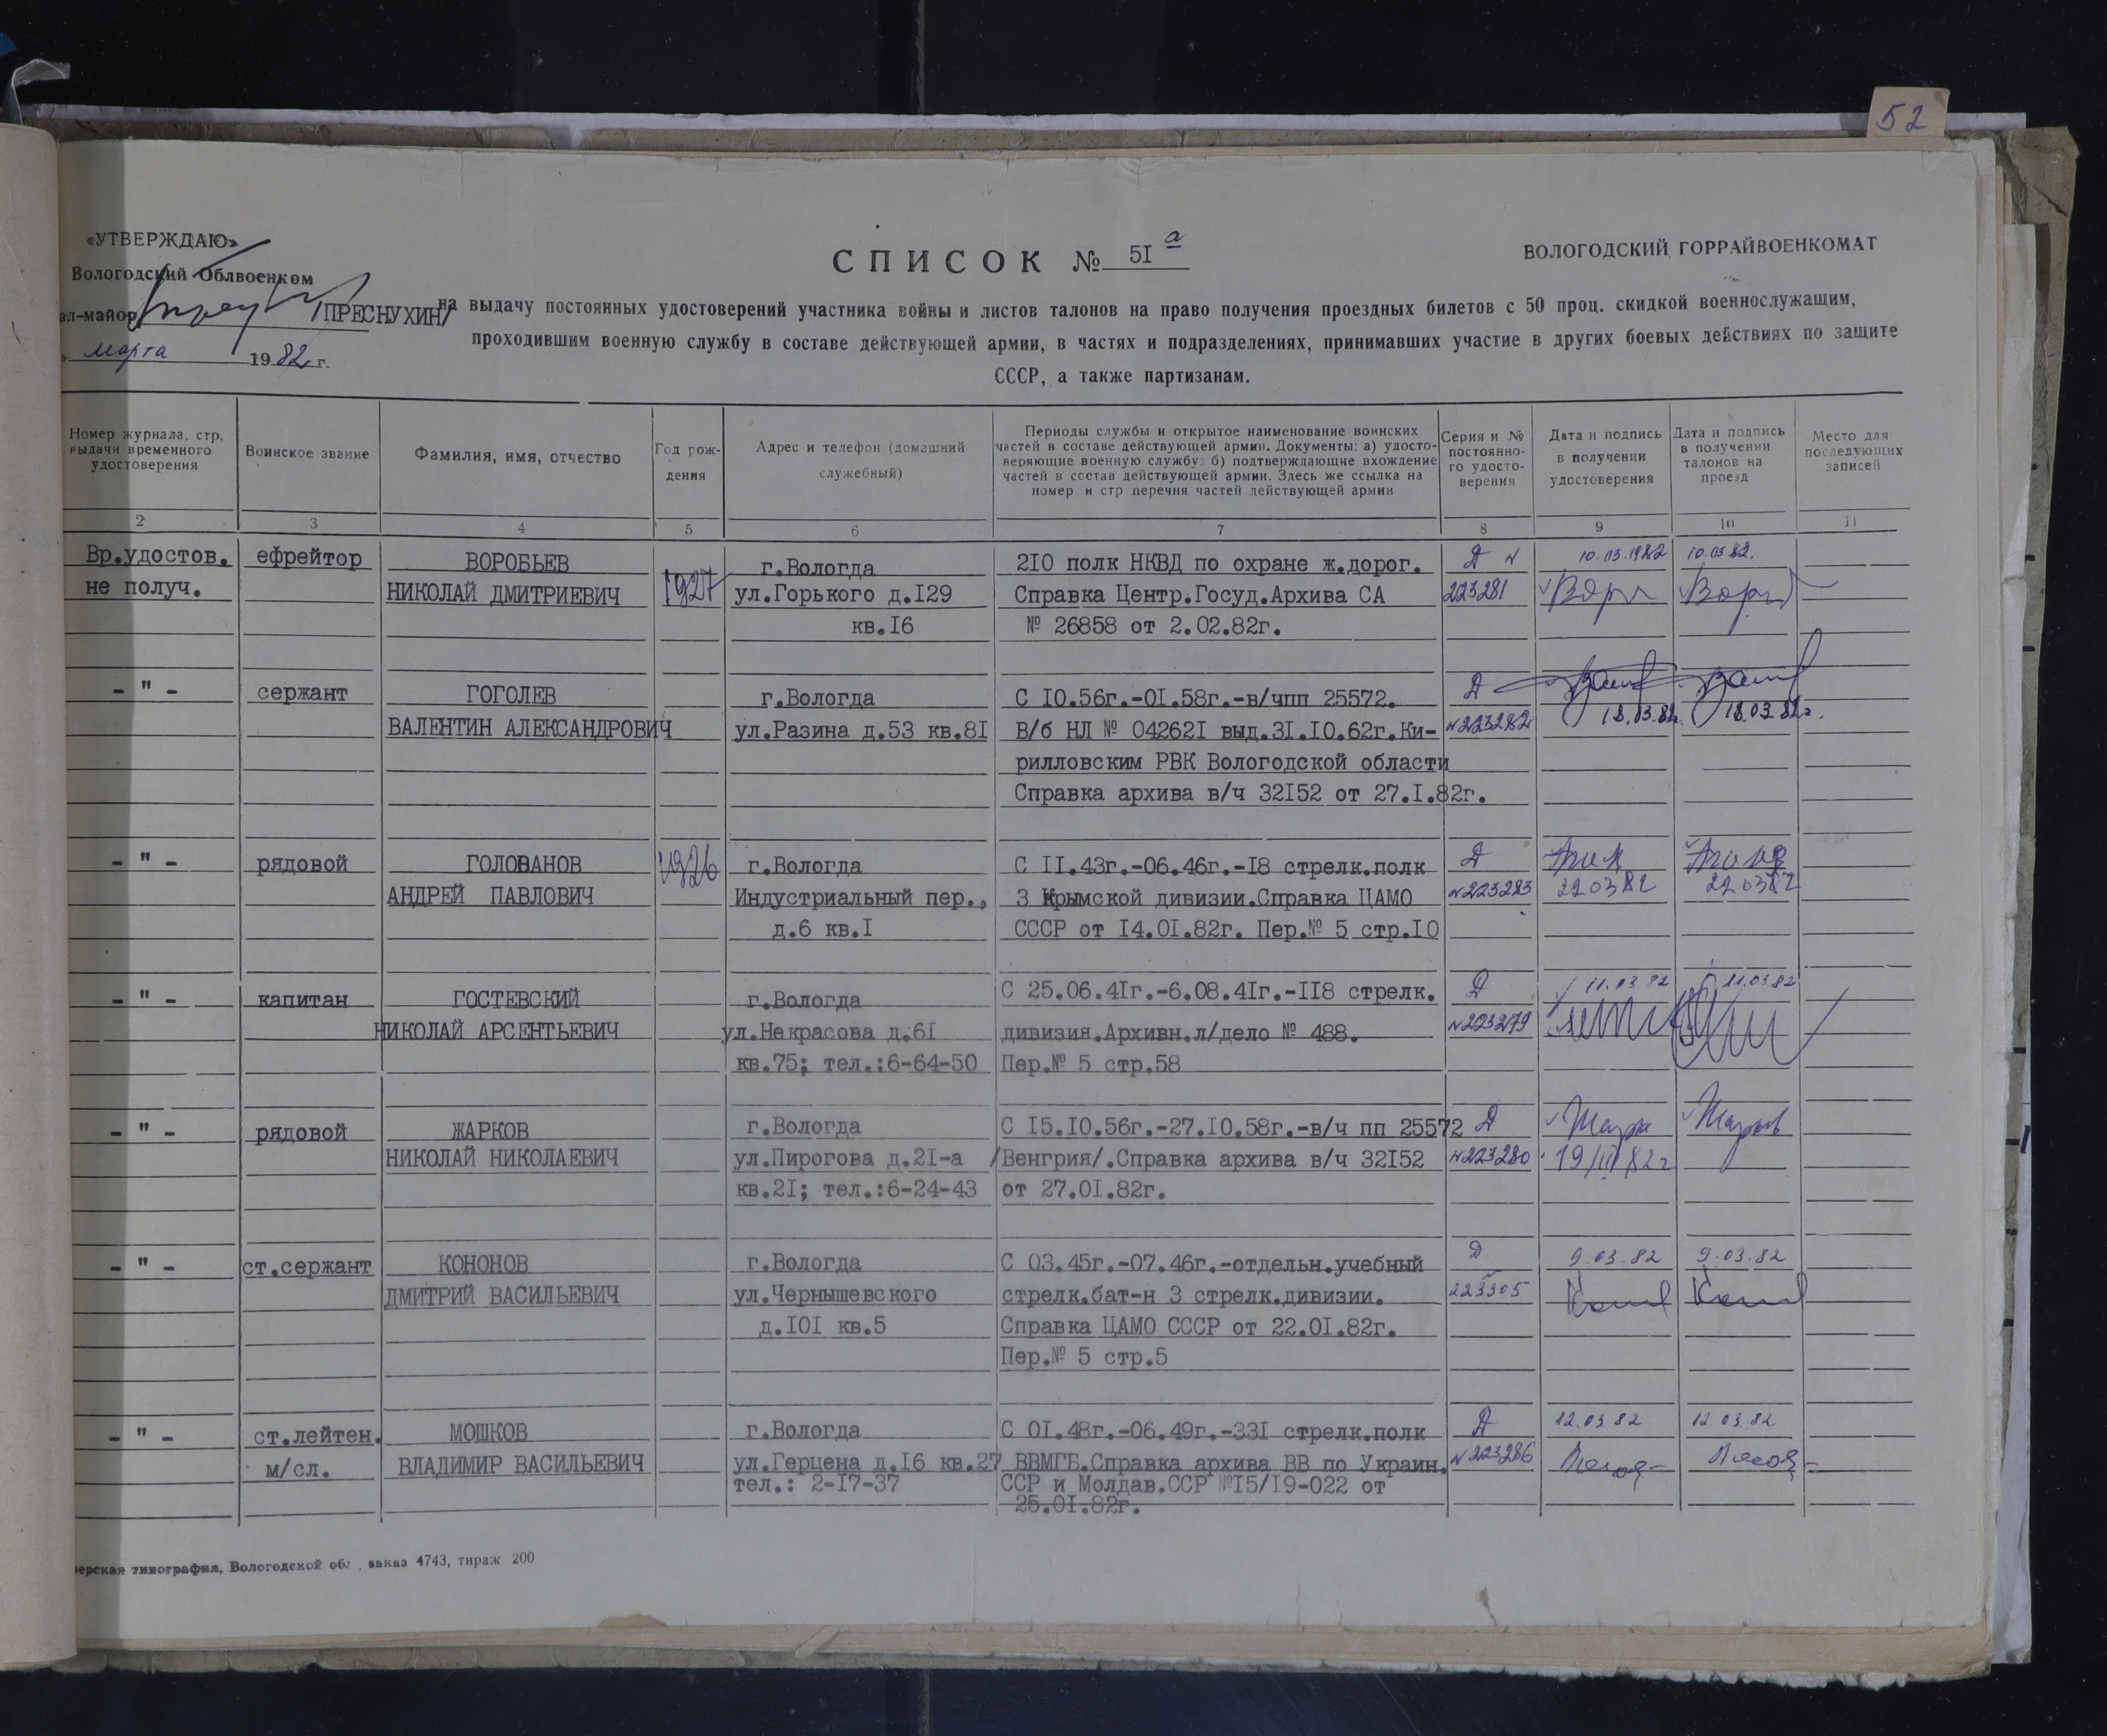 52
«УТВЕРЖДАЮ»
Вологодский Облвоенком
ал-майор /ПРЕСНУХИН/
марта 1982 г.
СПИСОК № 5I а
ВОЛОГОДСКИЙ ГОРРАЙВОЕНКОМАТ
на выдачу постоянных удостоверений участника войны и листов талонов на право получения проездных билетов с 50 проц. скидкой военнослужащим,
проходившим военную службу в составе действующей армии, в частях и подразделениях, принимавших участие в других боевых действиях по защите
СССР, а также партизанам.
Номер журнала, стр. выдачи временного удостоверения
Воинское звание
Фамилия, имя, отчество
Год рож-
дения
Адрес и телефон (домашний
служебный)
Периоды службы и открытое наименование воинских
частей в составе действующей армии. Документы: а) удосто-
веряющие военную службу; б) подтверждающие вхождение
частей в состав действующей армии. Здесь же ссылка на
номер и стр перечня частей действующей армии
Серия и №
постоянно-
го удосто-
верения
Дата и подпись
в получении
удостоверения
Дата и подпись
в получении
талонов на
проезд
Место для
последующих
записей
2 3 4 5 6 7 8 9 10 11
Вр.удостов. ефрейтор ВОРОБЬЕВ г.Вологда 2I0 полк НКВД по охране ж.дорог. Д № 10.03.1982 10.03.82.
не получ. НИКОЛАЙ ДМИТРИЕВИЧ 1927 ул.Горького д.I29 Справка Центр.Госуд.Архива СА 223281
кв.I6 № 26858 от 2.02.82г.
- " - сержант ГОГОЛЕВ г.Вологда С I0.56г.-0I.58г.-в/чпп 25572. Д
ВАЛЕНТИН АЛЕКСАНДРОВИЧ ул.Разина д.53 кв.8I В/б НЛ № 04262I выд.3I.I0.62г.Ки- №223282 18.03.82г. 18.03.82г.
рилловским РВК Вологодской области
Справка архива в/ч 32I52 от 27.I.82г.
- " - рядовой ГОЛОВАНОВ 1926 г.Вологда С II.43г.-06.46г.-I8 стрелк.полк Д
АНДРЕЙ ПАВЛОВИЧ Индустриальный пер., 3 Крымской дивизии.Справка ЦАМО №223283 22 03 82 22 03 82
д.6 кв.I СССР от I4.0I.82г. Пер.№ 5 стр.I0
- " - капитан ГОСТЕВСКИЙ г.Вологда С 25.06.4Iг.-6.08.4Iг.-II8 стрелк. Д 11.03.82 11.03.82
НИКОЛАЙ АРСЕНТЬЕВИЧ ул.Некрасова д.6I дивизия.Архивн.л/дело № 488. №223279
кв.75; тел.:6-64-50 Пер.№ 5 стр.58
- " - рядовой ЖАРКОВ г.Вологда С I5.I0.56г.-27.I0.58г.-в/ч пп 25572 Д
НИКОЛАЙ НИКОЛАЕВИЧ ул.Пирогова д.2I-а /Венгрия/.Справка архива в/ч 32I52 №223280 19/III 82г
кв.2I; тел.:6-24-43 от 27.0I.82г.
- " - ст.сержант КОНОНОВ г.Вологда С 03.45г.-07.46г.-отдельн.учебный Д 9.03.82 9.03.82
ДМИТРИЙ ВАСИЛЬЕВИЧ ул.Чернышевского стрелк.бат-н 3 стрелк.дивизии. 223305
д.I0I кв.5 Справка ЦАМО СССР от 22.0I.82г.
Пер.№ 5 стр.5
- " - ст.лейтен. МОШКОВ г.Вологда С 0I.48г.-06.49г.-33I стрелк.полк Д 12.03 82 12.03 82
м/сл. ВЛАДИМИР ВАСИЛЬЕВИЧ ул.Герцена д.I6 кв.27 ВВМГБ.Справка архива ВВ по Украин. №223286
тел.: 2-I7-37 ССР и Молдав.ССР №I5/I9-022 от
25.0I.82г.
ерская типография, Вологодской обл. заказ 4743, тираж 200